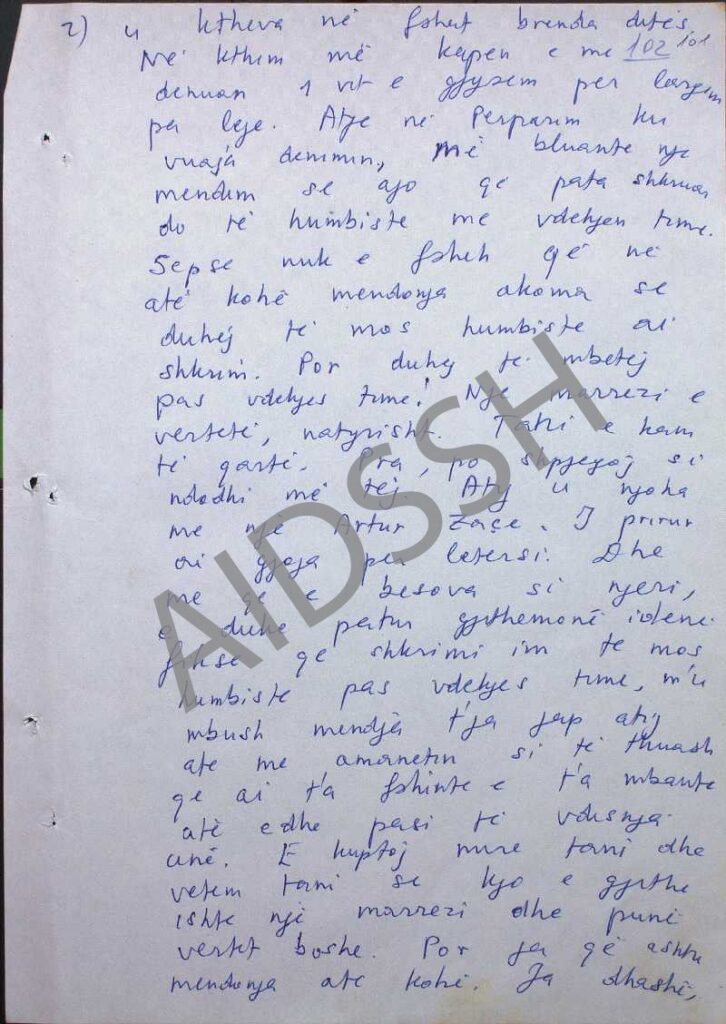 2) u ktheva në fshat brenda ditës.
Në kthim më kapen e me 102 101
denuan 1 vit e gjysem per largim
pa leje. Atje në Perparim ku
vuaja denimin, më bluante nje
mendim se ajo që pata shkruar
do të humbiste me vdekjen time.
Sepse nuk e fsheh që në
atë kohë mendonja akoma se
duhej të mos humbiste ai
shkrim. Por duhej te mbetej
pas vdekjes time! Nje marrezi e
vertetë, natyrisht. Tani e kam
të qartë. Pra, po shpjegoj si
ndodhi më tej. Atj u njoha
me nje Artur Zaçe. I prirur
ai gjoja per letersi. Dhe
me qe e besova si njeri,
e duke patur gjithemonë idenë
fikse që shkrimi im te mos
humbiste pas vdekjes time, m'u
mbush mendja t'ja jap atij
ate me amanetin si të thuash
qe ai t'a fshinte e t'a mbante
atë edhe pasi të vdisnja
unë. E kuptoj mire tani dhe
vetem tani se kjo e gjitha
ishte një marrezi dhe punë
vertet boshe. Por ja që ashtu
mendonja ate kohë. Ja dhashë,
AIDSSH